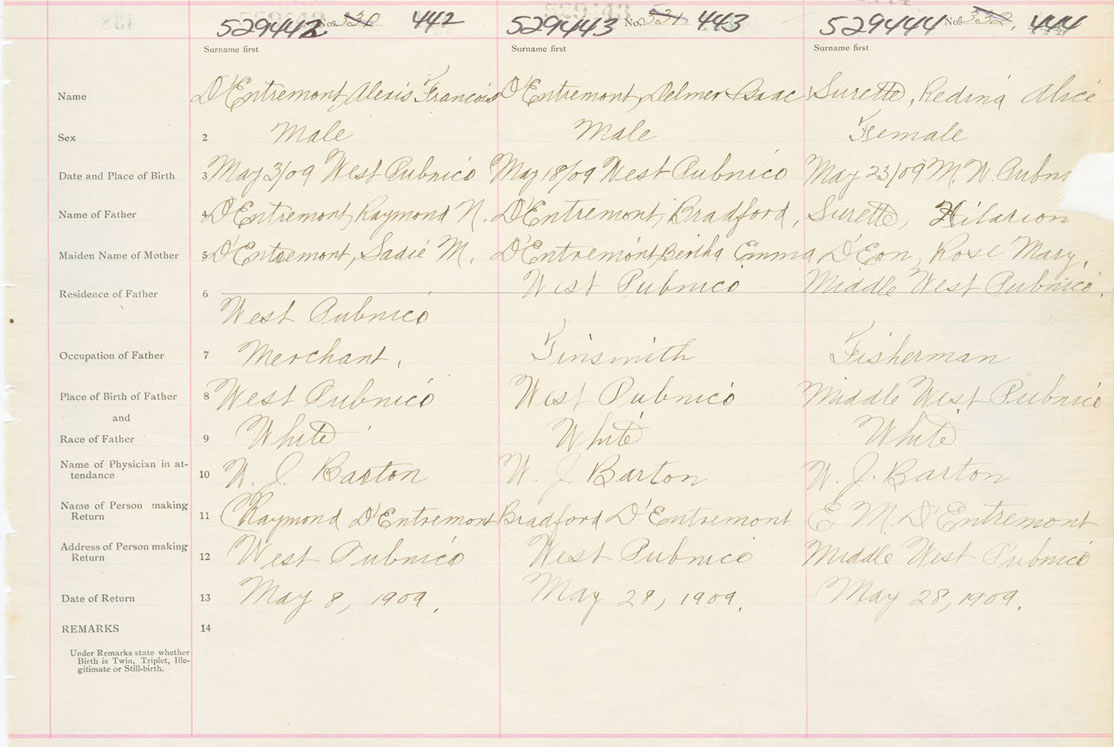 529442 No. 442 529443 No. 443 529444 No. 444
Surname first Surname first Surname first
Name D'Entremont, Alexis Francois D'Entremont, Delmer Isaac Surette, Redina Alice
Sex 2 Male Male Female
Date and Place of Birth 3 May 3/09 West Pubnico May 18/09 West Pubnico May 23/09 M. W. Pubn
Name of Father 4 D'Entremont, Raymond N. D'Entremont, Bradford, Surette, Hilarion
Maiden Name of Mother 5 D'Entremont, Sadie M. D'Entremont, Bertha Emma D'Eon, Rose Mary,
Residence of Father 6 West Pubnico West Pubnico Middle West Pubnico.
Occupation of Father 7 Merchant. Tinsmith Fisherman
Place of Birth of Father 8 West Pubnico West Pubnico Middle West Pubnico
and
Race of Father 9 White White White
Name of Physician in at-
tendance 10 W. J. Barton W. J. Barton W. J. Barton
Name of Person making
Return 11 Raymond D'Entremont Bradford D'Entremont E M. D'Entremont
Address of Person making
Return 12 West Pubnico West Pubnico Middle West Pubnico
Date of Return 13 May 8, 1909. May 28, 1909. May 28, 1909.
REMARKS 14
Under Remarks state whether
Birth is Twin, Triplet, Ille-
gitimate or Still-birth.